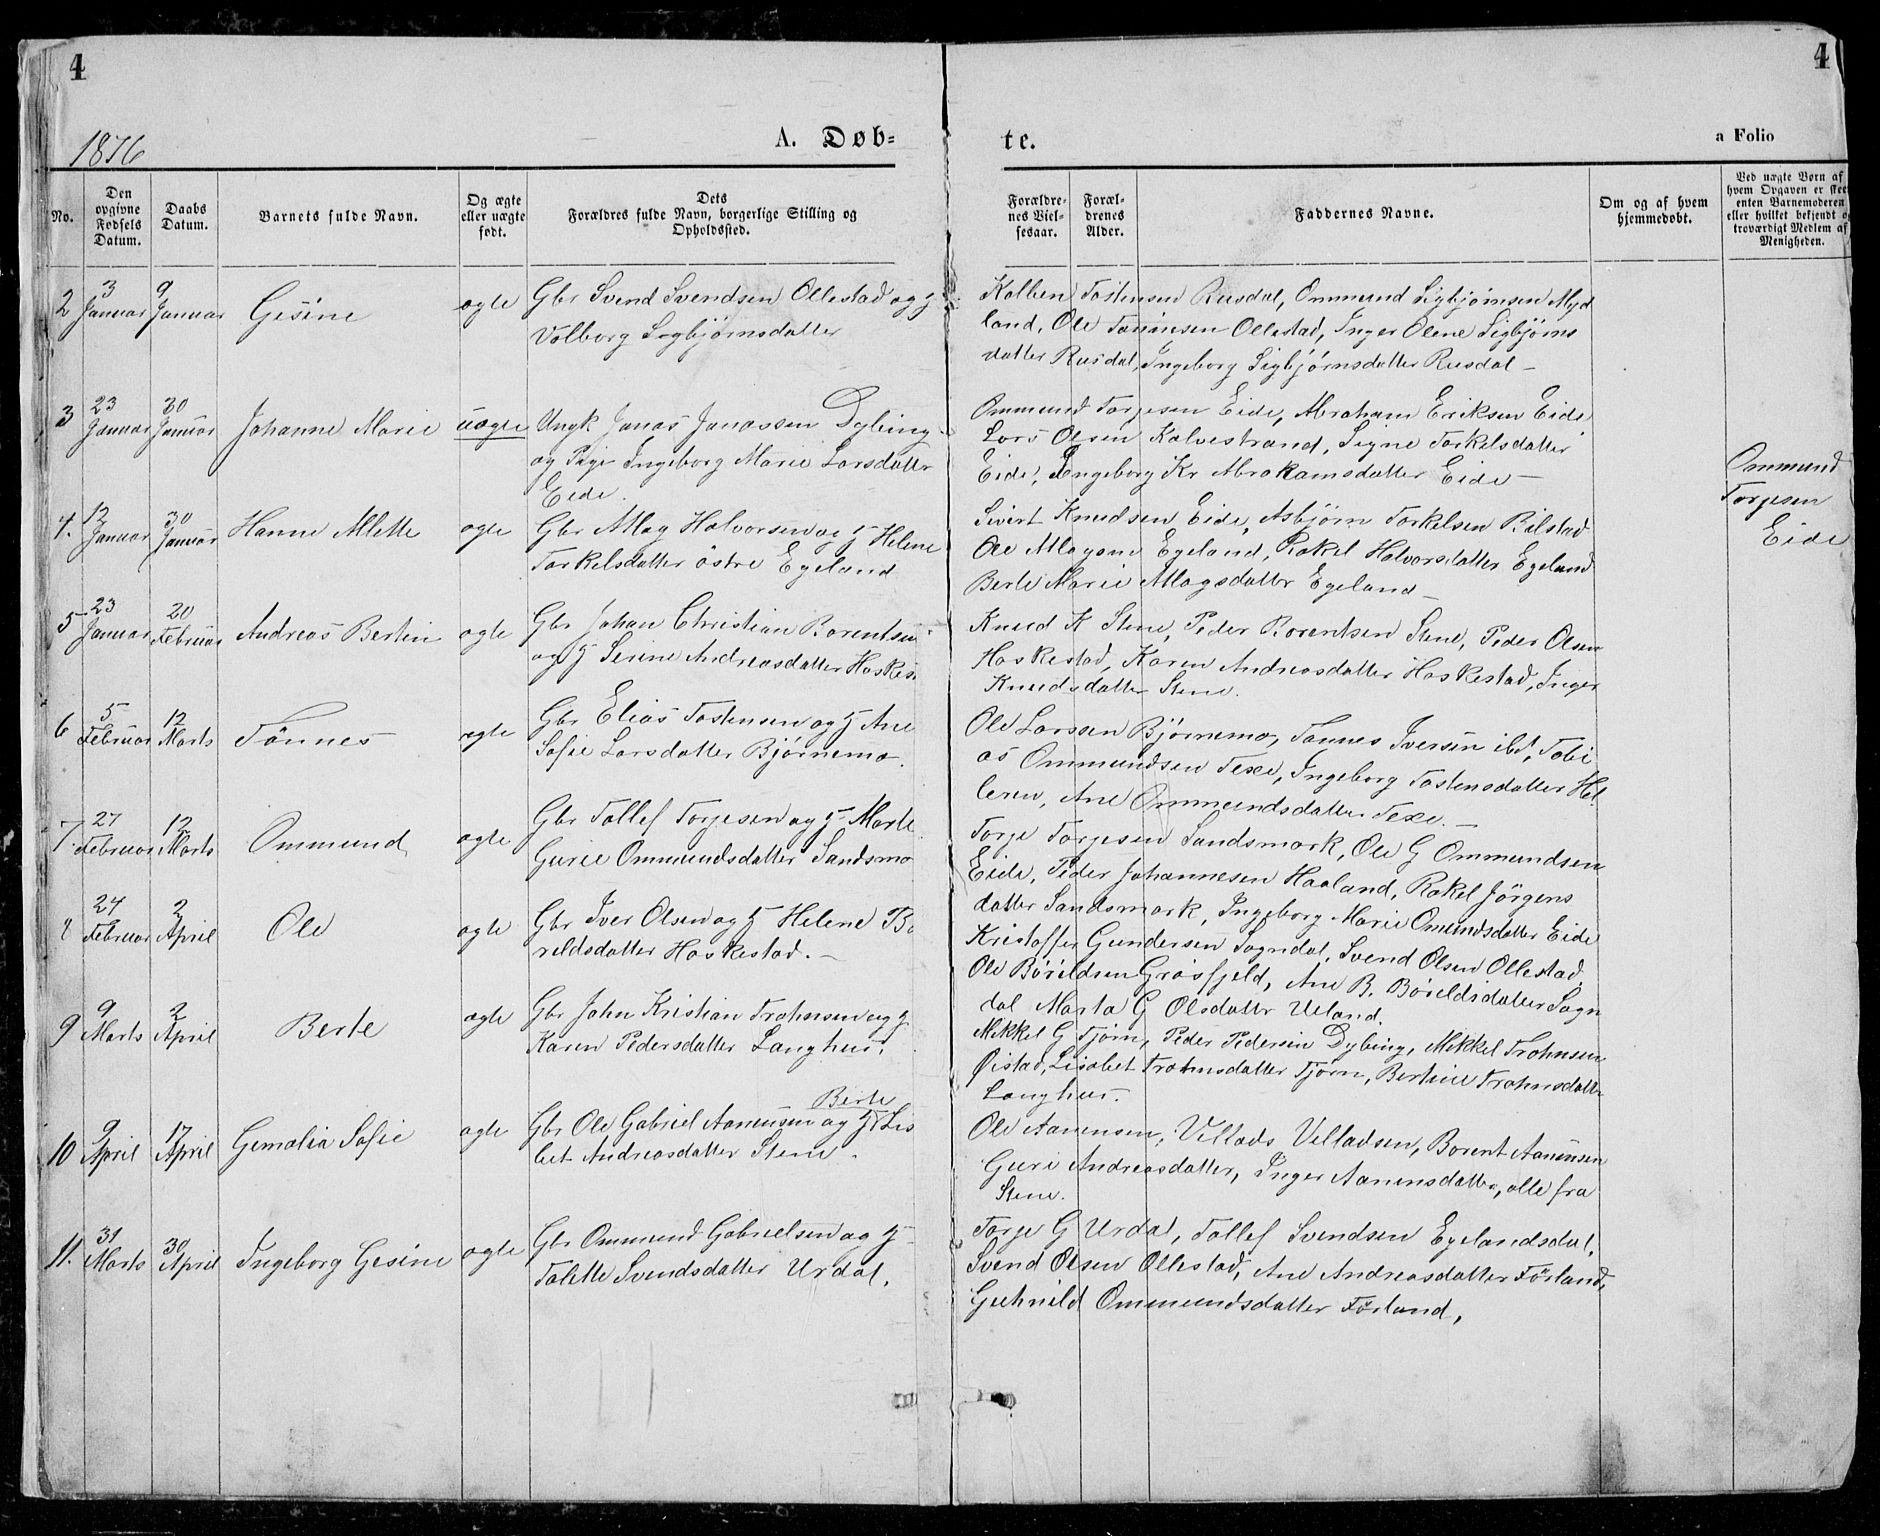 4
4
1876
A. Døb=
te.
a Folio
No.
Den opgivne Fødsels Datum.
Daabs Datum.
Barnets fulde Navn.
Og ægte eller uægte født.
Dets Forældres fulde Navn, borgerlige Stilling og Opholdssted.
Forældrenes Vielsesaar.
Forældrenes Alder.
Faddernes Navne.
Om og af hvem hjemmedøbt.
Ved uægte Børn af hvem Opgaven er skeet enten Barnemoderen eller hvilket bekjendt og troværdigt Medlem af Menigheden.
2 3 Januar 9 Januar Gesine ægte Gbr Svend Svendsen Ollestad og H
Volborg Sigbjørnsdatter
Kolben Tostensen Rusdal, Ommund Sigbjørnsen Myd
land, Ole Tønnesen Ollestad, Inger Olene Sigbjørns
datter Rusdal, Ingeborg Sigbjørnsdatter Rusdal –
3 23 Januar 30 Januar Johanne Marie uægte Ungk Jonas Jonassen Dybing
og Pige Ingeborg Marie Larsdatter
Eide.
Ommund Torjesen Eide, Abraham Eriksen Eide
Lars Olsen Kalvestrand, Signe Torkelsdatter
Eide, Ingeborg Kr Abrahamsdatter Eide –
Ommund
Torjesen
Eide
4. 12 Januar 30 Januar Hanne Alette ægte Gbr Atlag Halvorsen og H Helene
Torkelsdatter østre Egeland
Sivert Knudsen Eide, Asbjørn Torkelsen Bilstad
Ole Atlagsen Egeland, Rakel Halvorsdatter Egeland
Berte Marie Atlagsdatter Egeland –
5 23 Januar 20 Februar Andreas Bertin ægte Gbr Johan Christian Borentsen
og H Serine Andreasdatter Haskest
Knud K Stene, Peder Borentsen Stene, Peder Olsen
Haskestad, Karen Andreasdatter Haskestad, Inger
Knudsdatter Stene.
6 5 Februar 12 Marts Tönnes ægte Gbr Elias Tostensen og H Ane
Sofie Larsdatter Bjørnemo.
Ole Larssen Bjørnemo, Tønnes Iversen ibd, Tobi
as Ommundsen Texe, Ingeborg Tostensdatter Hel
leren, Ane Ommundsdatter Texe. –
7. 27 Februar 12 Marts Ommund ægte Gbr Tollef Torjesen og H Marte
Gurie Ommundsdatter Sandsmo
Torje Torjesen Sandsmark, Ole G Ommundsen
Eide, Peder Johannesen Haaland, Rakel Jörgens
datter Sandsmark, Ingeborg Marie Omundsdatter Eide
8 24 Februar 2 April Ole ægte Gbr Iver Olsen og H Helene Bo
reldsdatter Haskestad. –
Kristoffer Gundersen Sogndal, Svend Olsen Ollestad
Ole Böreldsen Grøsfjeld, Ane B. Böreldsdatter Sogn
dal Marta G Olsdatter Ueland.
9 9 Marts 2 April Berte ægte Gbr John Kristian Trohnsen og H
Karen Pedersdatter Langhus.
Mikkel G Tjørn, Peder Pedersen Dybing, Mikkel Trohnsen
Øistad, Lisabet Trohnsdatter Tjørn, Bertine Trohnsdatter
Langhus.
10 9 April 17 April Gemalia Sofie ægte Gbr Ole Gabriel Aanensen og H Berte Lis
bet Andreasdatter Stene.
Ole Aanensen, Villads Villadsen, Borent Aanensen
Guri Andreasdatter, Inger Aanensdatter, alle fra
Stene.
11. 31 Marts 30 April Ingeborg Gesine ægte Gbr Ommund Gabrielsen og H
Talette Svendsdatter Urdal.
Torje G Urdal, Tollef Svendsen Egelandsdal,
Svend Olsen Ollestad, Ane Andreasdatter Förland,
Guhnild Ommundsdatter Förland,